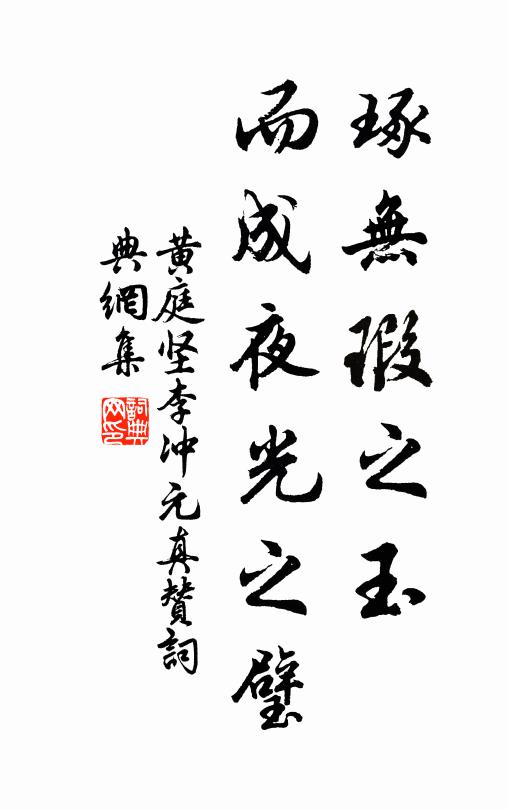 琢無瑕之玉
而成夜光之璧
黄庭坚李冲元真赞詞
典網集
詞典网印